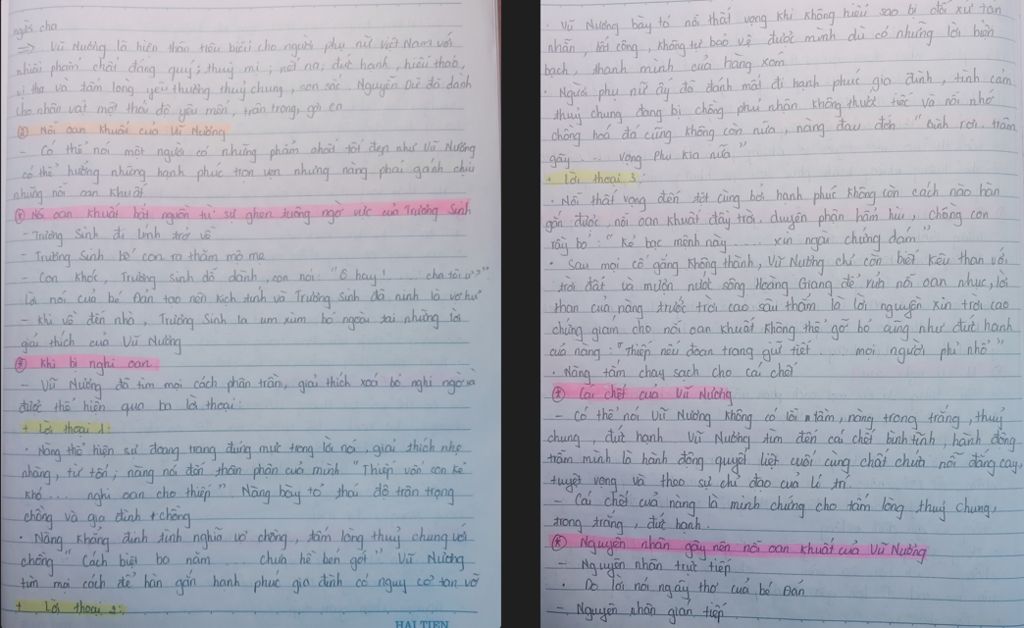 người cha
=> Vũ Nương là hiện thân tiêu biểu cho người phụ nữ Việt Nam với
nhiều phẩm chất đáng quý; thuỳ mị; nết na, đức hạnh, hiếu thảo,
vị tha và tấm lòng yêu thương thuỷ chung, son sắc. Nguyễn Dữ đã dành
cho nhân vật một thái độ yêu mến, trân trọng, gợi ca
② Nỗi oan khuất của Vũ Nương
- Có thể nói một người có những phẩm chất tốt đẹp như Vũ Nương
có thể hưởng những hạnh phúc trọn vẹn nhưng nàng phải gánh chịu
những nỗi oan khuất
* Nỗi oan khuất bắt nguồn từ sự ghen tuông ngờ vực của Trương Sinh
- Trương Sinh đi lính trở về
- Trương Sinh bế con ra thăm mộ mẹ
- Con khóc, Trương Sinh dỗ dành, con nói: "Ô hay! ... cha tôi ư?"
Lời nói của bé Đản tạo nên kịch tính và Trương Sinh đã ninh là vợ hư
- Khi về đến nhà, Trương Sinh la um xùm bỏ ngoài tai những lời
giải thích của Vũ Nương
* Khi bị nghi oan
- Vũ Nương đã tìm mọi cách phân trần, giải thích xoá bỏ nghi ngờ và
được thể hiện qua ba lời thoại:
+ Lời thoại 1:
• Nàng thể hiện sự đoang trang đúng mực trong lời nói, giải thích nhẹ
nhàng, từ tốn; nàng nói đến thân phận của mình "Thiếp vốn con kẻ
khó.... nghi oan cho thiếp". Nàng bày tỏ thái độ trân trọng
chồng và gia đình + chồng
• Nàng khẳng định tình nghĩa vợ chồng, tấm lòng thuỷ chung với
chồng "Cách biệt ba năm .... chưa hề bén gót" Vũ Nương
tìm mọi cách để hàn gắn hạnh phúc gia đình có nguy cơ tan vỡ
+ Lời thoại 2:
HẢI TIẾN
• Vũ Nương bày tỏ nỗi thất vọng khi không hiểu sao bị đối xử tàn
nhẫn, bất công, không tự bảo vệ được mình dù có những lời biện
bạch, thanh minh của hàng xóm
• Người phụ nữ ấy đã đánh mất đi hạnh phúc gia đình, tình cảm
thuỷ chung đang bị chồng phủ nhận không thương tiếc và nỗi nhớ
chồng hoá đá cũng không còn nữa, nàng đau đớn "Bình rơi trâm
gãy ... Vọng Phu kia nữa"
+ Lời thoại 3:
• Nỗi thất vọng đến tột cùng bởi hạnh phúc không còn cách nào hàn
gắn được, nỗi oan khuất đầy trời, duyên phận hẩm hiu, chồng con
rẫy bỏ: "Kẻ bạc mệnh này ..... xin ngài chứng dám"
• Sau mọi cố gắng không thành, Vũ Nương chỉ còn biết kêu than với
trời đất và muốn nước sông Hoàng Giang để rửa nỗi oan nhục, lời
than của nàng trước trời cao sâu thẳm là lời nguyện xin trời cao
chứng giám cho nỗi oan khuất không thể gỡ bỏ cũng như đức hạnh
của nàng: "Thiếp nếu đoan trang giữ tiết ... mọi người phỉ nhổ"
• Nàng tắm chay sạch cho cái chết
* Cái chết của Vũ Nương
- Có thể nói Vũ Nương không có lỗi tâm, nàng trong trắng, thuỷ
chung, đức hạnh Vũ Nương tìm đến cái chết bình tĩnh, hành động
trẫm mình là hành động quyết liệt cuối cùng chất chứa nỗi đắng cay,
tuyệt vọng và theo sự chỉ đạo của lí trí.
- Cái chết của nàng là minh chứng cho tấm lòng thuỷ chung,
trong trắng, đức hạnh.
* Nguyên nhân gây nên nỗi oan khuất của Vũ Nương
- Nguyên nhân trực tiếp
• Do lời nói ngây thơ của bé Đản
- Nguyên nhân gián tiếp